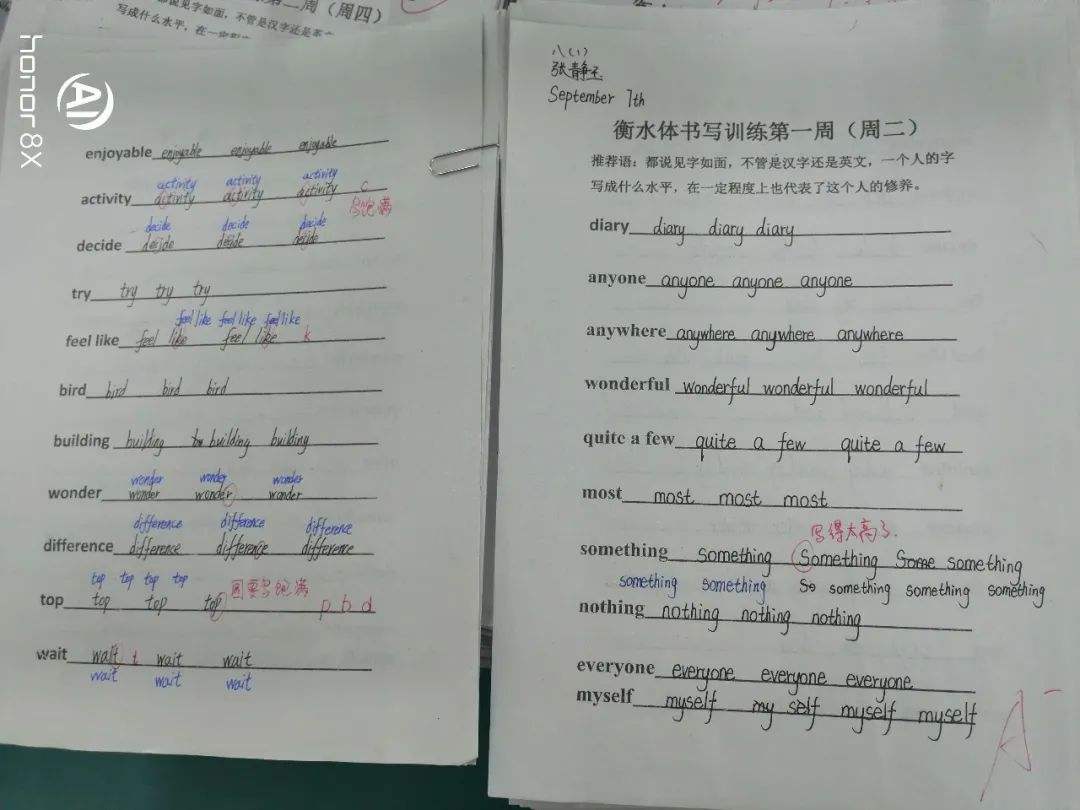 honor 8X
AI
周（周四）
都说见字如面，不管是汉字还是英
写成什么水平，在一定程
enjoyable enjoyable enjoyable enjoyable
activity activity activity
activity activity activity activity c
写饱满
decide decide decide
decide decide decide decide
try try try try
feel like feel like feel like
feel like feel like feel like k
bird bird bird bird
building building building building
wonder wonder wonder
wonder wonder wonder wonder
difference difference difference
difference difference difference difference
top top top top
圆要写饱满
top top top top p b d
wait wait t wait wait
wait wait wait
八（1）
September 7th
衡水体书写训练第一周（周二）
推荐语：都说见字如面，不管是汉字还是英文，一个人的字
写成什么水平，在一定程度上也代表了这个人的修养。
diary diary diary diary
anyone anyone anyone anyone
anywhere anywhere anywhere anywhere
wonderful wonderful wonderful wonderful
quite a few quite a few quite a few
most most most most
写得太高了.
something something Something Some something
something something So something something something
nothing nothing nothing nothing
everyone everyone everyone everyone
myself myself my self myself myself
A-